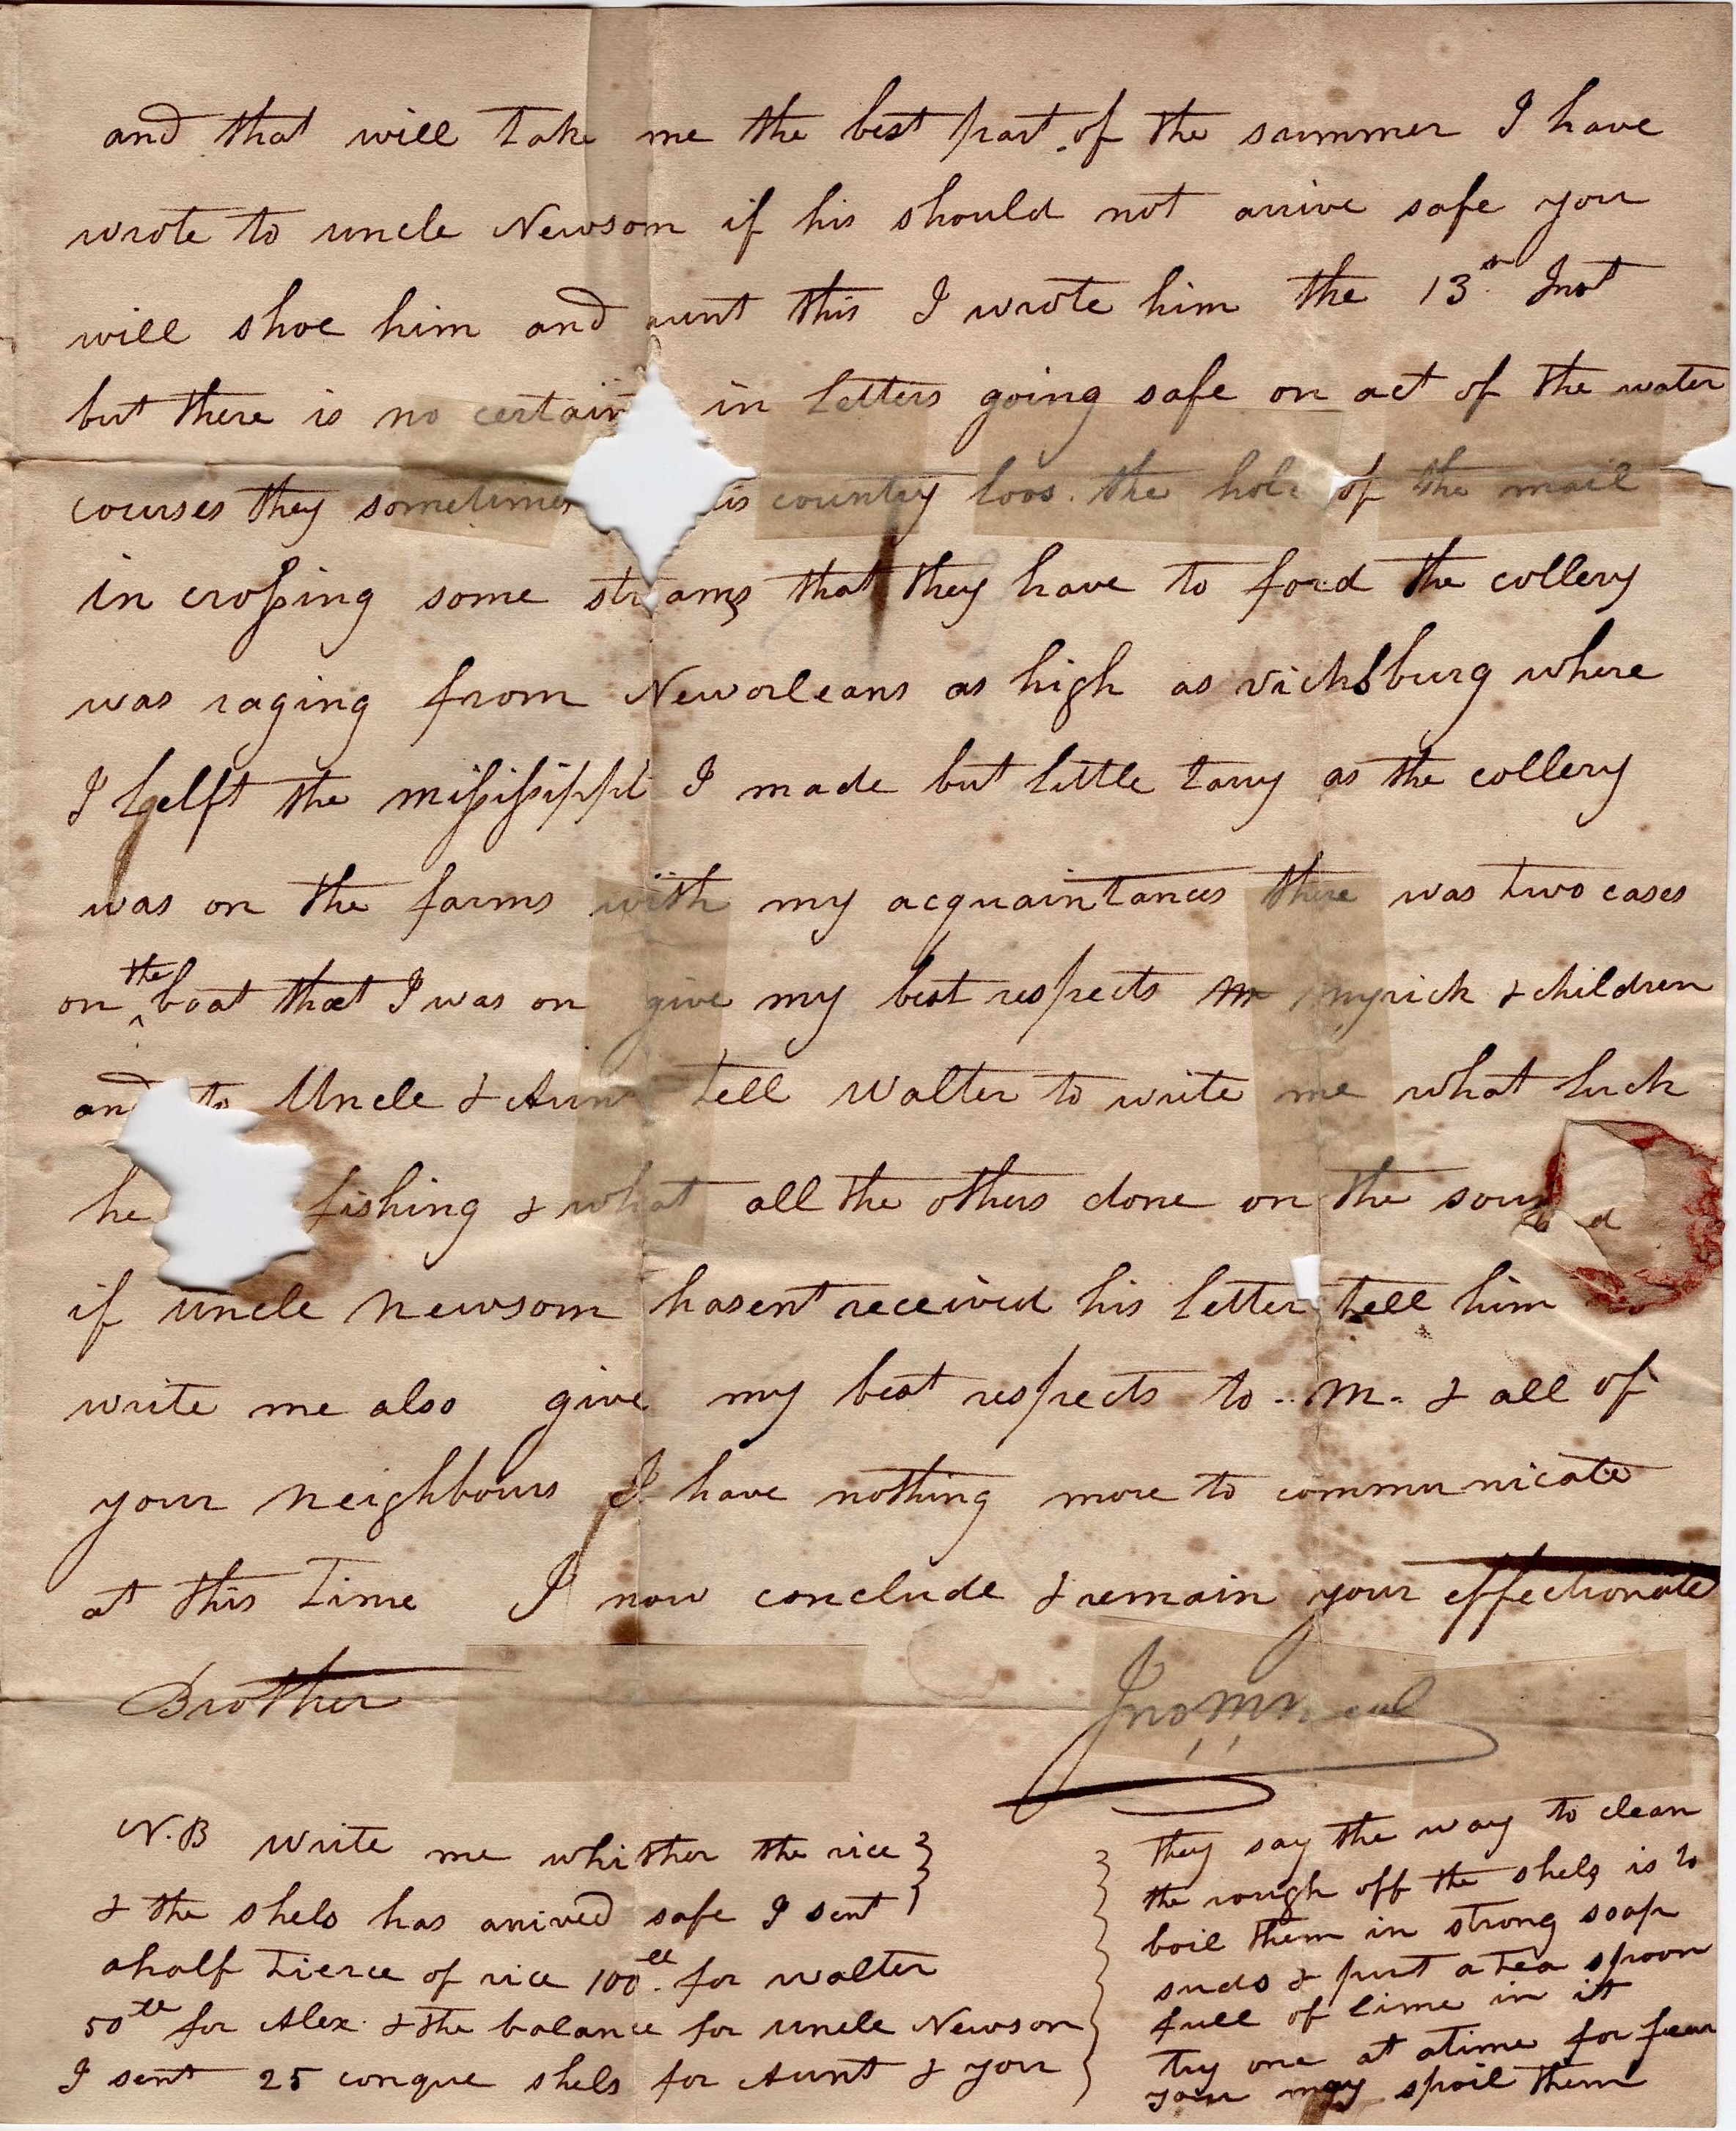 and that will take me the best part of the summer I have
wrote to uncle Newsom if his should not arrive safe you
will shoe him and aunt this I wrote him the 13th Inst
but there is no certain in letters going safe on act of the water
courses they sometimes is country loos the hole of the mail
in crossing some streams that they have to ford the collery
was raging from Neworleans as high as vicksburg where
I left the mississippi I made but little tarry as the collery
was on the farms with my acquaintances there was two cases
on the boat that I was on give my best respects Mr Myrick & children
and to Uncle & Aunt tell Walter to write me what luck
he fishing & what all the others done on the sound
if uncle Newsom hasent received his letter tell him to
write me also give my best respects to M. & all of
your neighbours I have nothing more to communicate
at this time I now conclude & remain your effectionate
Brother
Jno
N.B write me whither the rice
& the shels has arived safe I sent
ahalf tierce of rice 100 ll for walter
50 ll for Alex & the balance for uncle Newsom
I sent 25 conque shels for Aunt & you
they say the way to clean
the rough off the shels is to
boil them in strong soap
suds & put a tea spoon
full of lime in it
try one at atime for fear
you may spoil them